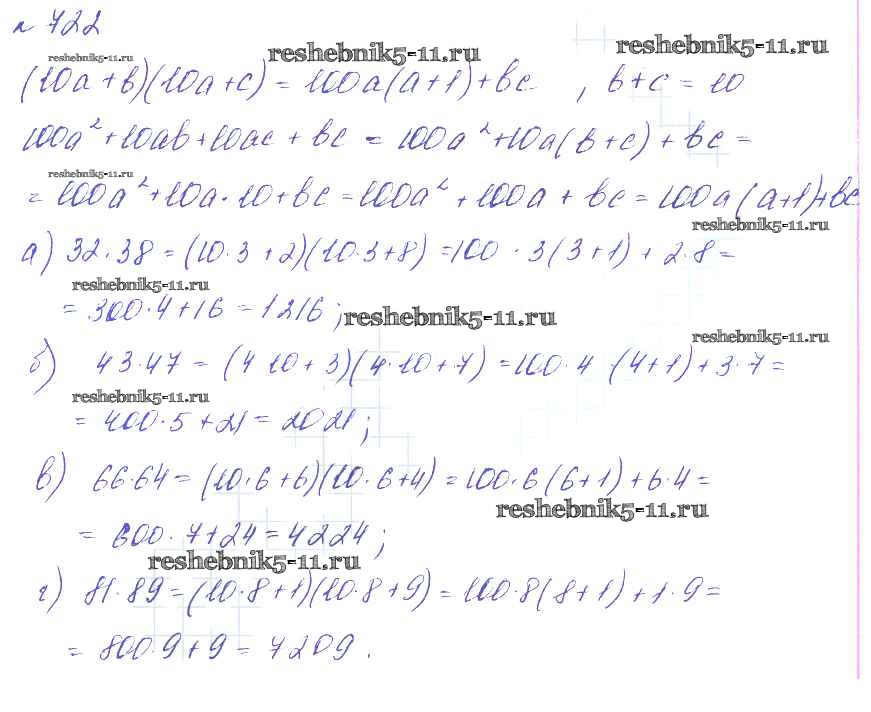 № 722
reshebnik5-11.ru reshebnik5-11.ru reshebnik5-11.ru
(10a + b)(10a + c) = 100a(a+1) + bc , b + c = 10
100a² + 10ab + 10ac + bc = 100a² + 10a(b + c) + bc =
reshebnik5-11.ru
= 100a² + 10a · 10 + bc = 100a² + 100a + bc = 100a(a+1)+bc
reshebnik5-11.ru
а) 32 · 38 = (10·3 + 2)(10·3+8) = 100 · 3(3+1) + 2·8 =
reshebnik5-11.ru
= 300·4 + 16 = 1216 ; reshebnik5-11.ru
reshebnik5-11.ru
б) 43·47 = (4 10 + 3)(4·10 + 7) = 100·4 (4+1) + 3·7 =
reshebnik5-11.ru
= 400·5 + 21 = 2021 ;
в) 66·64 = (10·6 + 6)(10·6+4) = 100·6(6+1) + 6·4 =
reshebnik5-11.ru
= 600·7+24 = 4224 ;
reshebnik5-11.ru
г) 81·89 = (10·8+1)(10·8+9) = 100·8(8+1) + 1·9 =
= 800·9 + 9 = 7209 .